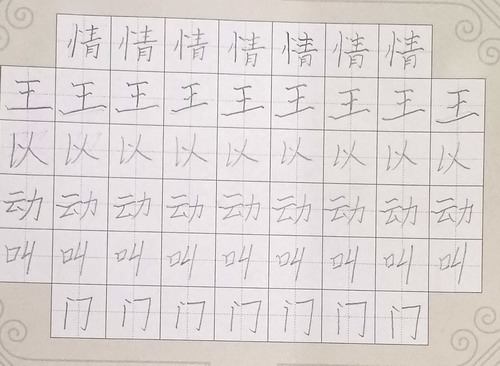 情情情情情情情
王王王王王王王王王
以以以以以以以以以
动动动动动动动动动
叫叫叫叫叫叫叫叫叫
门门门门门门门